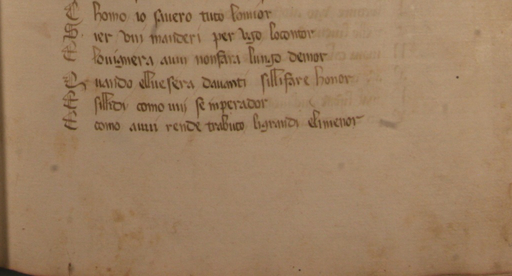 homo io sauero tuto lonuor
ier dui manderi per ugo locontor
louignera auui nonfara lungo demor
uando elliuesera dauanti sillifare honor
sillidi como uui se imperador
como auui rende trabuto ligrandi elimenor